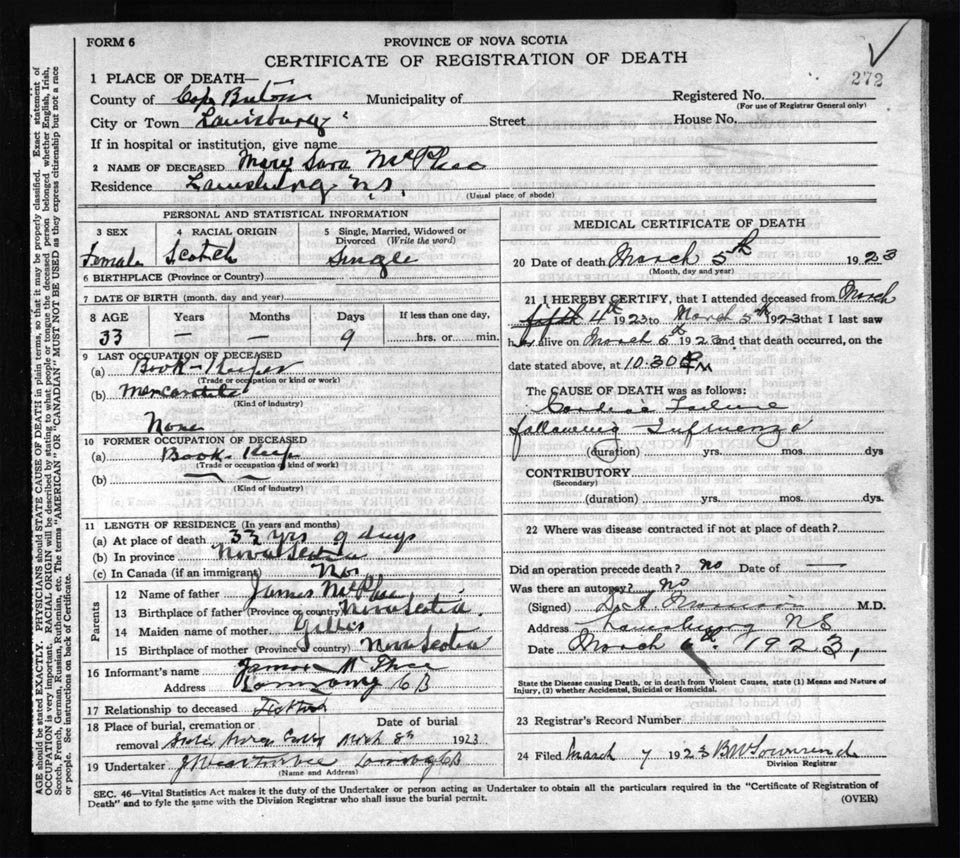 FORM 6
PROVINCE OF NOVA SCOTIA
CERTIFICATE OF REGISTRATION OF DEATH
272
1 PLACE OF DEATH—
County of Cape Breton Municipality of Registered No.
(For use of Registrar General only)
City or Town Louisburg Street House No.
If in hospital or institution, give name
2 NAME OF DECEASED Mary Sara McPhee
Residence Louisburg N.S.
(Usual place of abode)
PERSONAL AND STATISTICAL INFORMATION
3 SEX 4 RACIAL ORIGIN 5 Single, Married, Widowed or Divorced (Write the word)
Female Scotch Single
6 BIRTHPLACE (Province or Country)
7 DATE OF BIRTH (month, day and year)
8 AGE Years Months Days If less than one day,
33 — — 9 hrs. or min.
9 LAST OCCUPATION OF DECEASED
(a) Book-Keeper
(Trade or occupation or kind or work)
(b) Mercantile
(Kind of industry)
None
10 FORMER OCCUPATION OF DECEASED
(a) Book-Keep
(Trade or occupation of kind of work)
(b) —
(Kind of industry)
11 LENGTH OF RESIDENCE (In years and months)
(a) At place of death 33 yrs 9 days
(b) In province Nova Scotia
(c) In Canada (if an immigrant)
Parents
12 Name of father James McPhee
13 Birthplace of father (Province or country) Nova Scotia.
14 Maiden name of mother Gillis
15 Birthplace of mother (Province or country) Nova Scotia
16 Informant's name James McPhee
Address CB
17 Relationship to deceased
18 Place of burial, cremation or removal Date of burial
March 8th 1923
19 Undertaker CB
(Name and Address)
MEDICAL CERTIFICATE OF DEATH
20 Date of death March 5th 1923
(Month, day and year)
21 I HEREBY CERTIFY, that I attended deceased from March
fifth 4th 1923 to March 5th 1923 that I last saw
her alive on March 5th 1923 and that death occurred, on the
date stated above, at 10.30 P M
The CAUSE OF DEATH was as follows:
Cardiac Failure
following Influenza
(duration) yrs. mos. dys
CONTRIBUTORY
(Secondary)
(duration) yrs. mos. dys.
22 Where was disease contracted if not at place of death?
Did an operation precede death? no Date of —
Was there an autopsy? no
(Signed) M.D.
Address Louisburg NS
Date March 6th. 1923,
State the Disease causing Death, or in death from Violent Causes, state (1) Means and Nature of
Injury, (2) whether Accidental, Suicidal or Homicidal.
23 Registrar's Record Number
24 Filed March 7 1923 Townsend
Division Registrar
SEC. 46—Vital Statistics Act makes it the duty of the Undertaker or person acting as Undertaker to obtain all the particulars required in the "Certificate of Registration of
Death" and to fyle the same with the Division Registrar who shall issue the burial permit.
(OVER)
AGE should be stated EXACTLY. PHYSICIANS should STATE CAUSE OF DEATH in plain terms, so that it may be properly classified. Exact statement of
OCCUPATION is very important. RACIAL ORIGIN will be described by stating to what people or tongue the deceased person belonged, whether English, Irish,
Scotch, French, German, Russian, Ruthenian, etc. The terms "AMERICAN" OR "CANADIAN" MUST NOT BE USED as they express citizenship but not a race
or people. See instructions on back of Certificate.